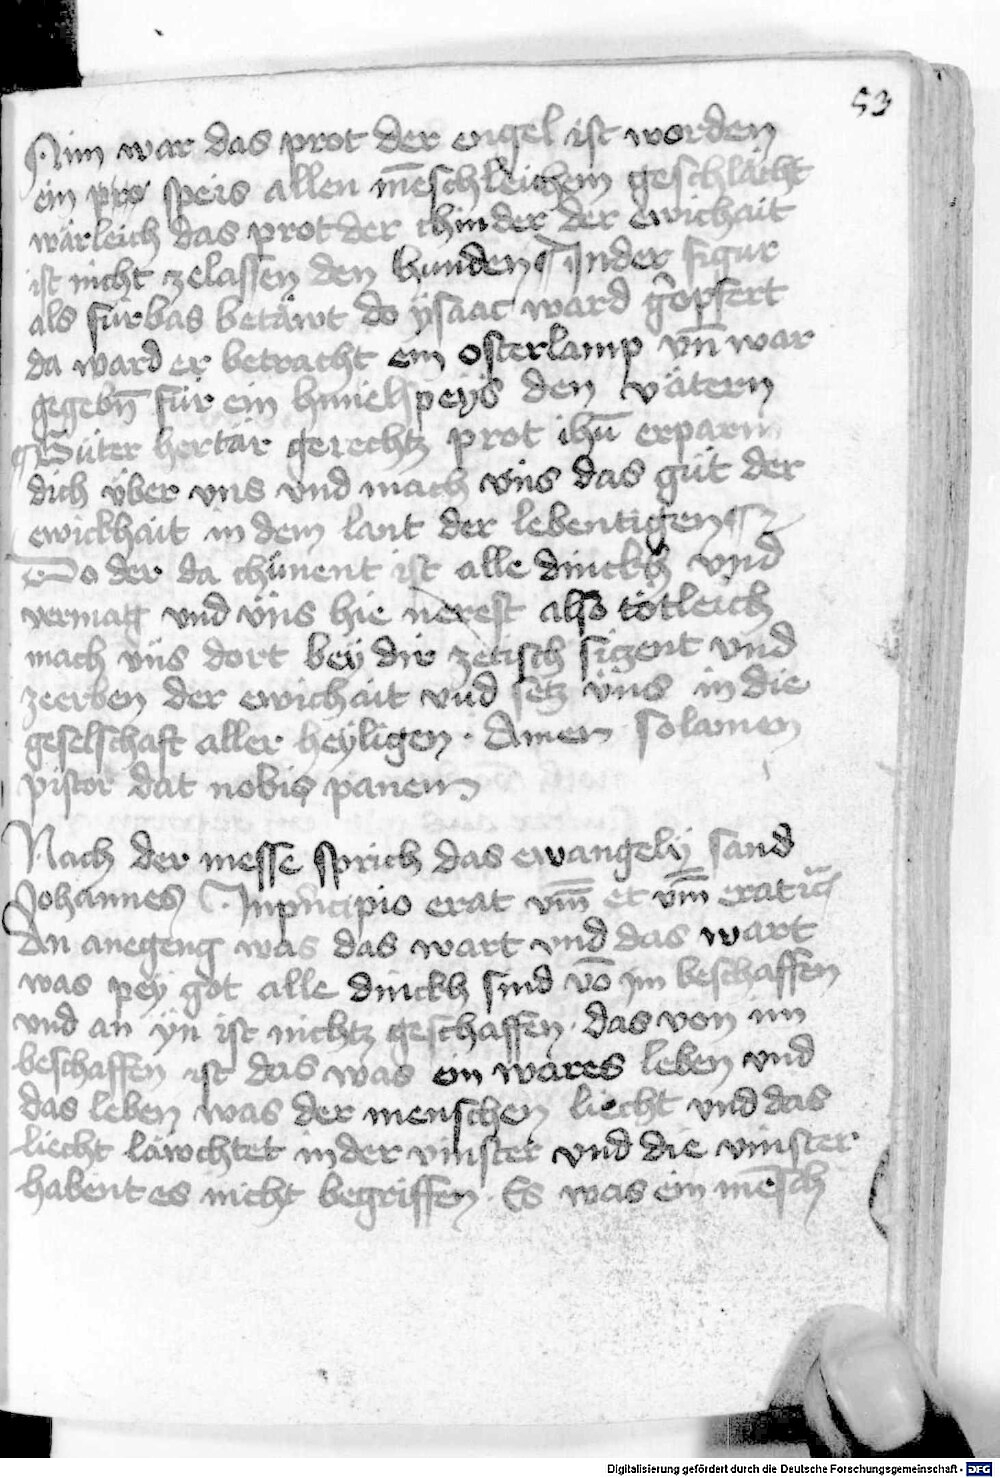 53
Nim war das prot der engel ist worden
ein pro speis allen mēschleichem geschlächt
wärleich das prot der chinder der ewichait
ist nicht zelassen den hunden ¶ In der figur
als fürbas betäwt do ÿsaac ward gͦopfert
da ward er betracht ein osterlamp vn̄ war
gegebn̄ für ein himelspeys den vätern
¶ Güter hertär gerechtz prot ihū erparm
dich über vns vnd mach vns das güt der
ewickhait in dem lant der lebentigen
Do der da chünent ist alle dinckh vnd
vermag vnd vns hie nerest also tötleich
mach vns dort bey dir zetisch siczent vnd
zeerben der ewichait vnd setz vns in die
geselschaft aller heyligen . Amen solamen
pistor dat nobis panem
Nach der messe sprich das ewangely sand
Johannes In pͥncipio erat vm̄ et vm̄ erat
An anegeng was das wart vnd das wart
was pey got alle dinckh sind vō im beschaffen
vnd an yn ist nichtz geschaffen . das von im
beschaffen ist das was ein wares leben vnd
das leben was der menschen liecht vnd das
liecht läwchtet in der vinster vnd die vinster
habent es nicht begriffen . Es was ein mēsch
Digitalisierung gefördert durch die Deutsche Forschungsgemeinschaft - DFG